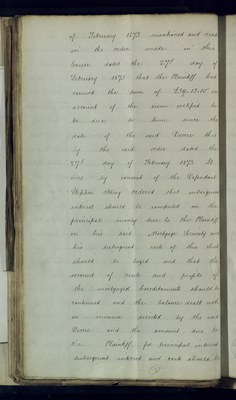 of February 1873 mentioned and set
in the order made in this
Cause dated the 27th day of
February 1873 that the Plaintiff had
received the sum of £39.13.10 on
account of the sums certified to
be due to him since the
date of the said Decree that
by the said order dated the
27th day of February 1873 It
was by consent of the Defendant
Stephen ordered that subsequent
interest should be computed on the
principal money due to the Plaintiff
on his said Mortgage Security and
his subsequent costs of this suit
should be taxed and that the
account of rents and profits of
the mortgaged hereditaments should be
continued and the balance dealt with
in manner directed by the said
Decree and the amount due to
the Plaintiff for principal interest
subsequent interest and costs should be